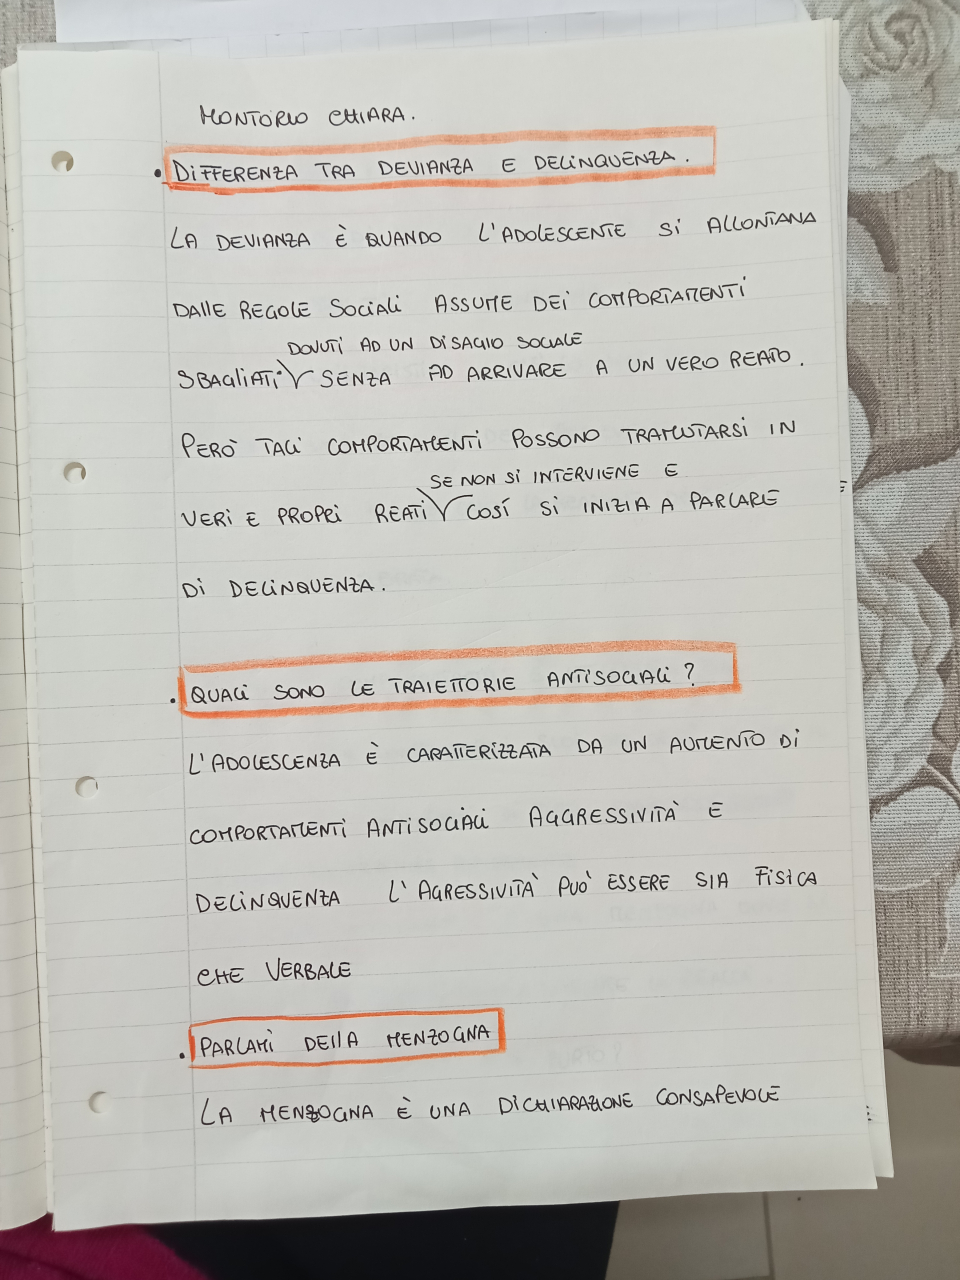 MONTORIO CHIARA.
• DIFFERENZA TRA DEVIANZA E DELINQUENZA.
LA DEVIANZA È QUANDO L'ADOLESCENTE SI ALLONTANA
DALLE REGOLE SOCIALI ASSUME DEI COMPORTAMENTI
DOVUTI AD UN DISAGIO SOCIALE
SBAGLIATI SENZA AD ARRIVARE A UN VERO REATO.
PERÒ TALI COMPORTAMENTI POSSONO TRAMUTARSI IN
SE NON SI INTERVIENE E
VERI E PROPRI REATI COSÍ SI INIZIA A PARLARE
DI DELINQUENZA.
• QUALI SONO LE TRAIETTORIE ANTISOCIALI?
L'ADOLESCENZA È CARATTERIZZATA DA UN AUMENTO DI
COMPORTAMENTI ANTISOCIALI AGGRESSIVITÀ E
DELINQUENZA L'AGRESSIVITÀ PUÒ ESSERE SIA FISICA
CHE VERBALE
• PARLAMI DELLA MENZOGNA
LA MENZOGNA È UNA DICHIARAZIONE CONSAPEVOLE